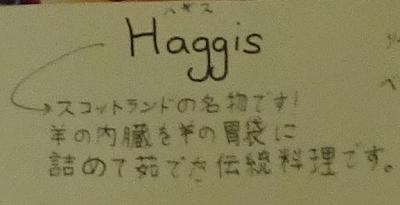 ハギス
Haggis
→スコットランドの名物です!
羊の内臓を羊の胃袋に
詰めて茹でた伝統料理です。